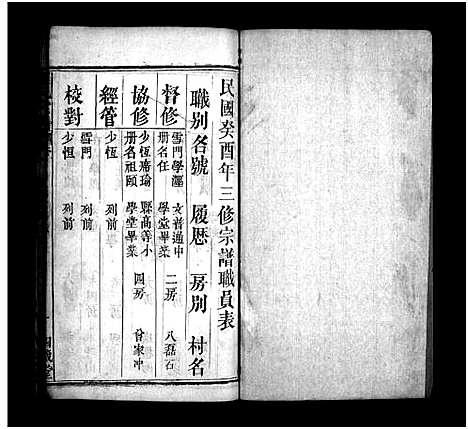 民國癸酉年三修宗譜職員表
職別 名號 履歷 房別 村名
督修 雪門學 册名任 文普通中學堂畢業 二房 八磊石
協修 少恆席瑜 册名祖頤 縣高等小學堂畢業 四房 曾家冲
經管 少恆 列前
校對 雪門 列前
少恒 列前